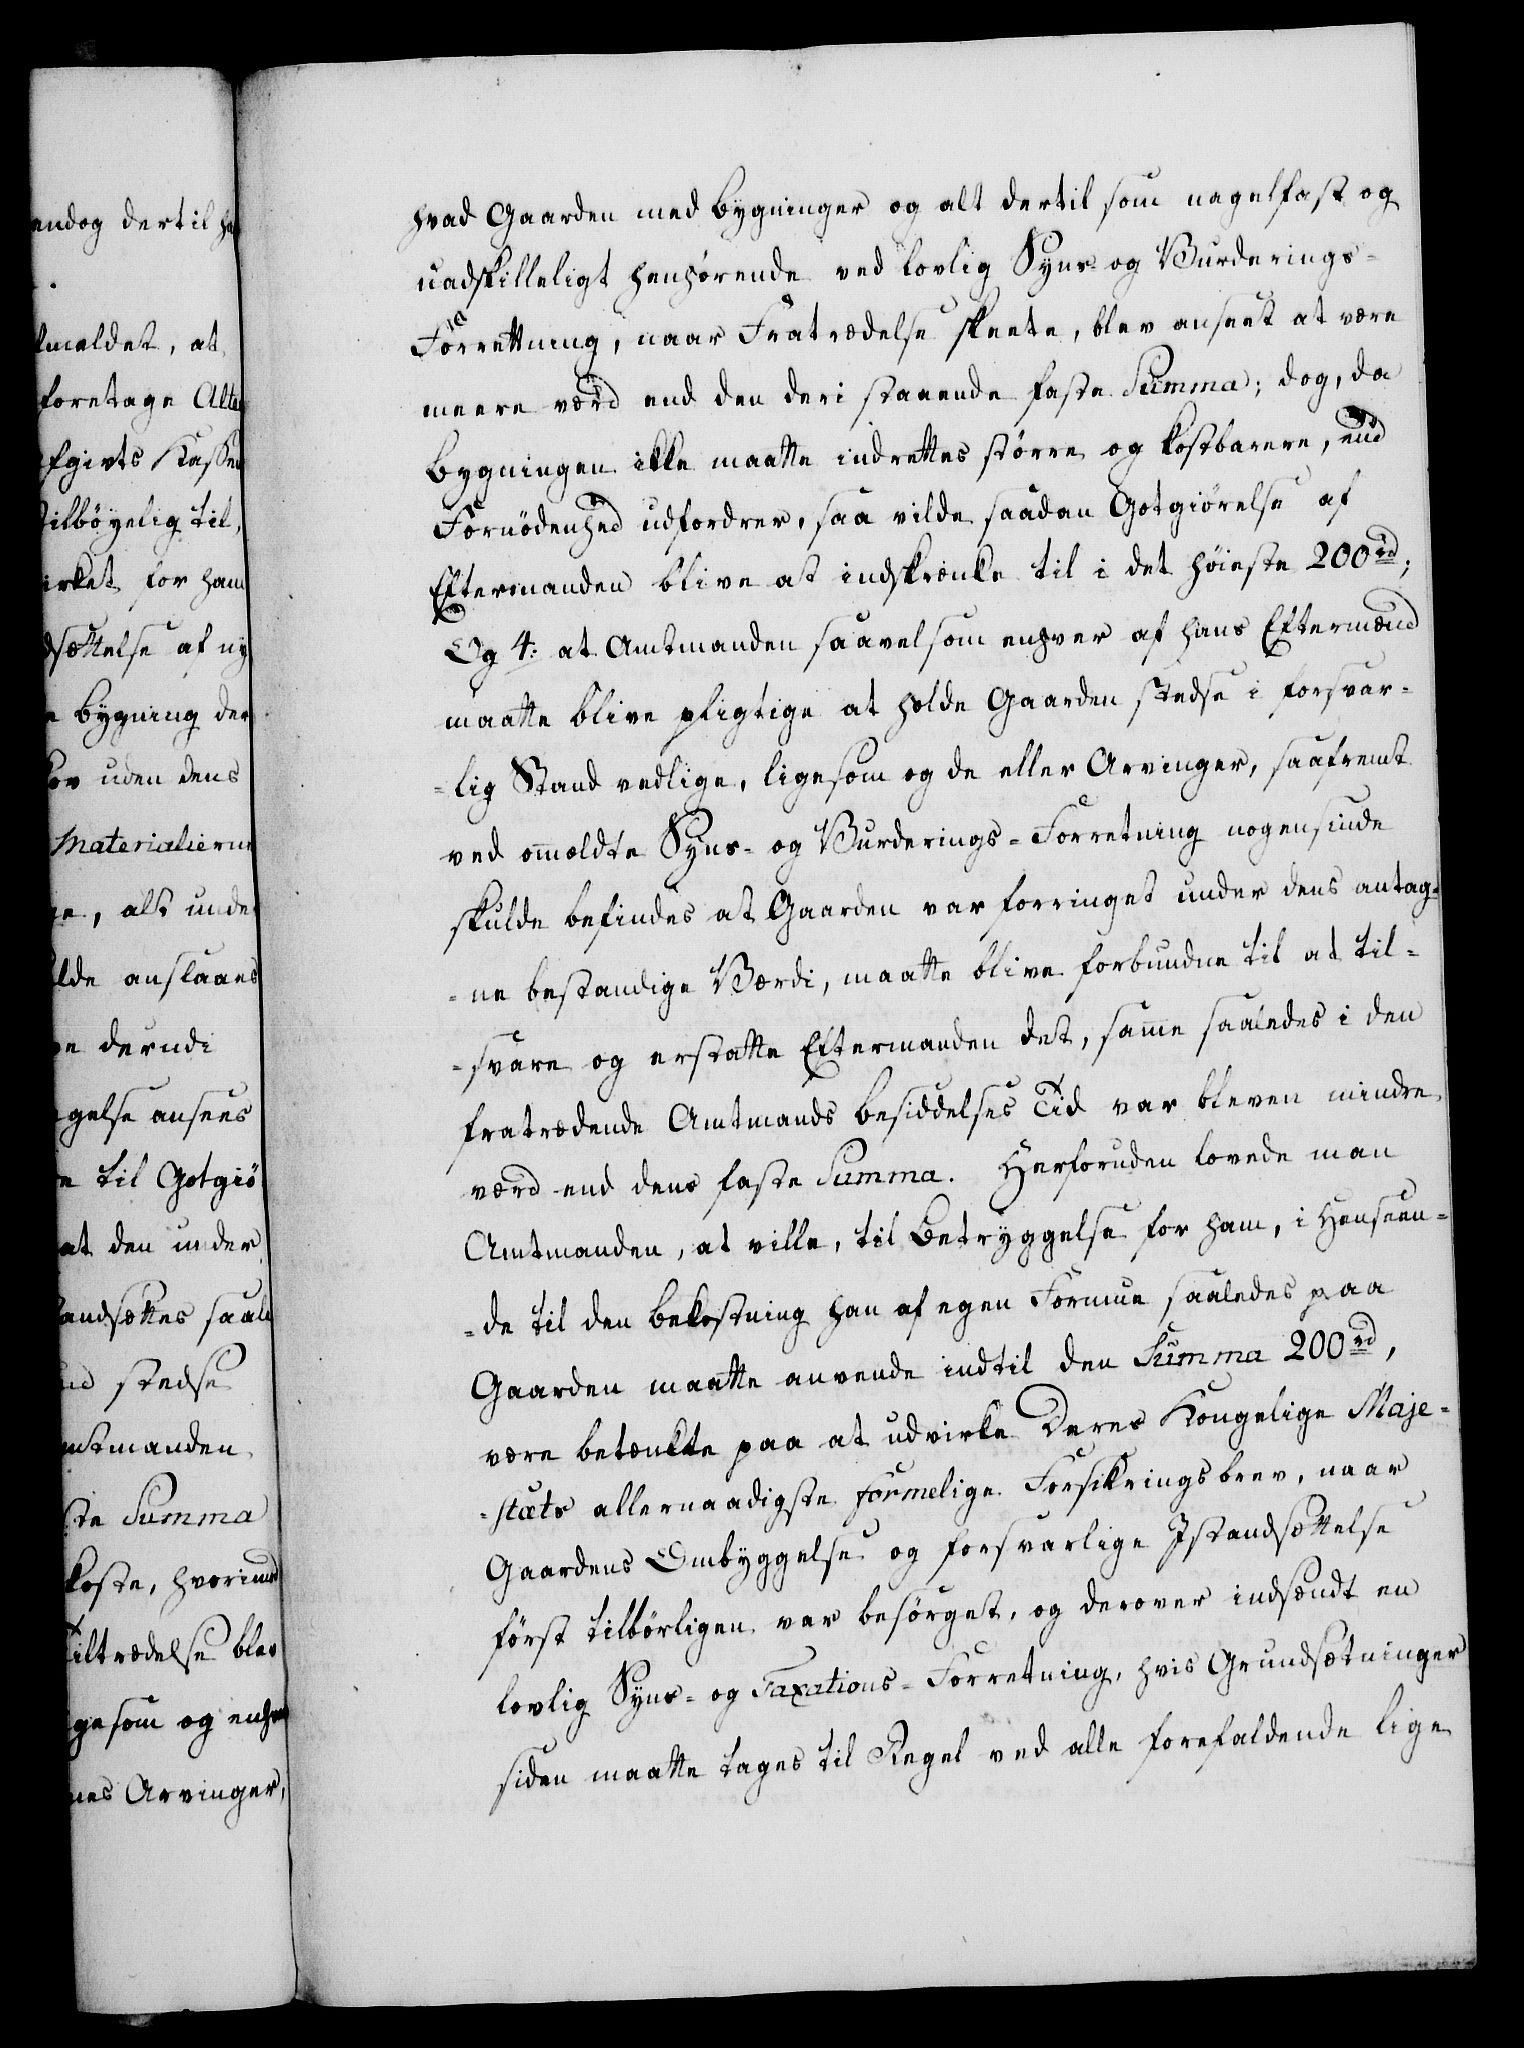 endog dertil ha
lmeldet, at
foretage Alte
fgivts Kassen
tilböyelig til,
irket for ham
dsættelse af ny
e bygning der
uden dens
Materialierne
e, alt under
lde anslaaes
derudi
gelse ansees
til Gotgiö
at den under
andsættes saale
stedse
mtmanden
ste Summa
koste, hvorimod
iltrædelse blev
gesom og enhver
nes Arvinger,
hvad Gaarden med bygninger og alt dertil som nagelfast og
uadskilleligt henhörende ved lovlig Syns- og Vurderings-
Forrettning, naar Fratrædelse skeete, blev anseet at være
meere værd end den deri staaende faste Summa; dog, da
bygningen ikke maatte indrettes större og kostbarere, end
Fornödenhed udfordrer, saa vilde saadan Gotgiörelse af
Eftermanden blive at indskrænke til i det höieste 200 rd;
Og 4: at Amtmanden saavelsom enhver af hans Eftermænd
maatte blive pligtige at holde Gaarden stedse i forsvar-
-lig Stand vedlige, ligesom og de eller Arvinger, saafremt
ved ommeldte Syns- og Vurderings-Forretning nogensinde
skulde befindes at Gaarden var forringet under dens antag-
-ne bestandige Værdi, maatte blive forbundne til at til-
-svare og erstatte Eftermanden det, samme saaledes i den
fratrædende Amtmands besiddelses Tid var bleven mindre
værd end dens faste Summa. Herforuden lovede man
Amtmanden, at ville, til Betryggelse for ham, i Henseen-
-de til den bekostning han af egen Formue saaledes paa
Gaarden maatte anvende indtil den Summa 200 rd,
være betænkte paa at udvirke Deres Kongelige Maje-
-stæts allernaadigste formelige Forsikringsbrev, naar
Gaardens Ombyggelse og forsvarlige Istandsættelse
först tilbörligen var besörget, og derover indsendt en
lovlig Syns- og Taxations-Forretning, hvis Grundsætninger
siden maatte tages til Regel ved alle forefaldende lige